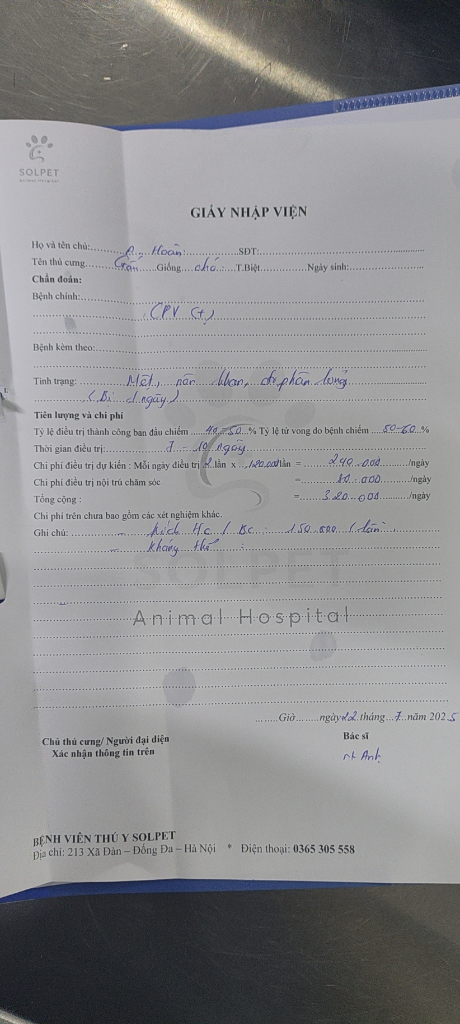 SOLPET
Animal Hospital
GIẤY NHẬP VIỆN
Họ và tên chủ: A. Hoàn SĐT:
Tên thú cưng Giống chó T.Biệt Ngày sinh:
Chẩn đoán:
Bệnh chính:
CPV (+)
Bệnh kèm theo:
Tình trạng: Mệt, nôn khan, đi phân lỏng
(Bị 1 ngày)
Tiên lượng và chi phí
Tỷ lệ điều trị thành công ban đầu chiếm 40-50 % Tỷ lệ tử vong do bệnh chiếm 50-60 %
Thời gian điều trị: 7 - 10 ngày
Chi phí điều trị dự kiến : Mỗi ngày điều trị 2 lần x 120.000/lần = 240.000 /ngày
Chi phí điều trị nội trú chăm sóc = 80.000 /ngày
Tổng cộng : = 320.000 /ngày
Chi phí trên chưa bao gồm các xét nghiệm khác.
Ghi chú: - kích HC / BC 150.000 / lần
- kháng thể
SOLPET
Animal Hospital
Giờ ngày 22 tháng 7 năm 2025
Chủ thú cưng/ Người đại diện Bác sĩ
Xác nhận thông tin trên
Anh
BỆNH VIỆN THÚ Y SOLPET
Địa chỉ: 213 Xã Đàn – Đống Đa – Hà Nội * Điện thoại: 0365 305 558